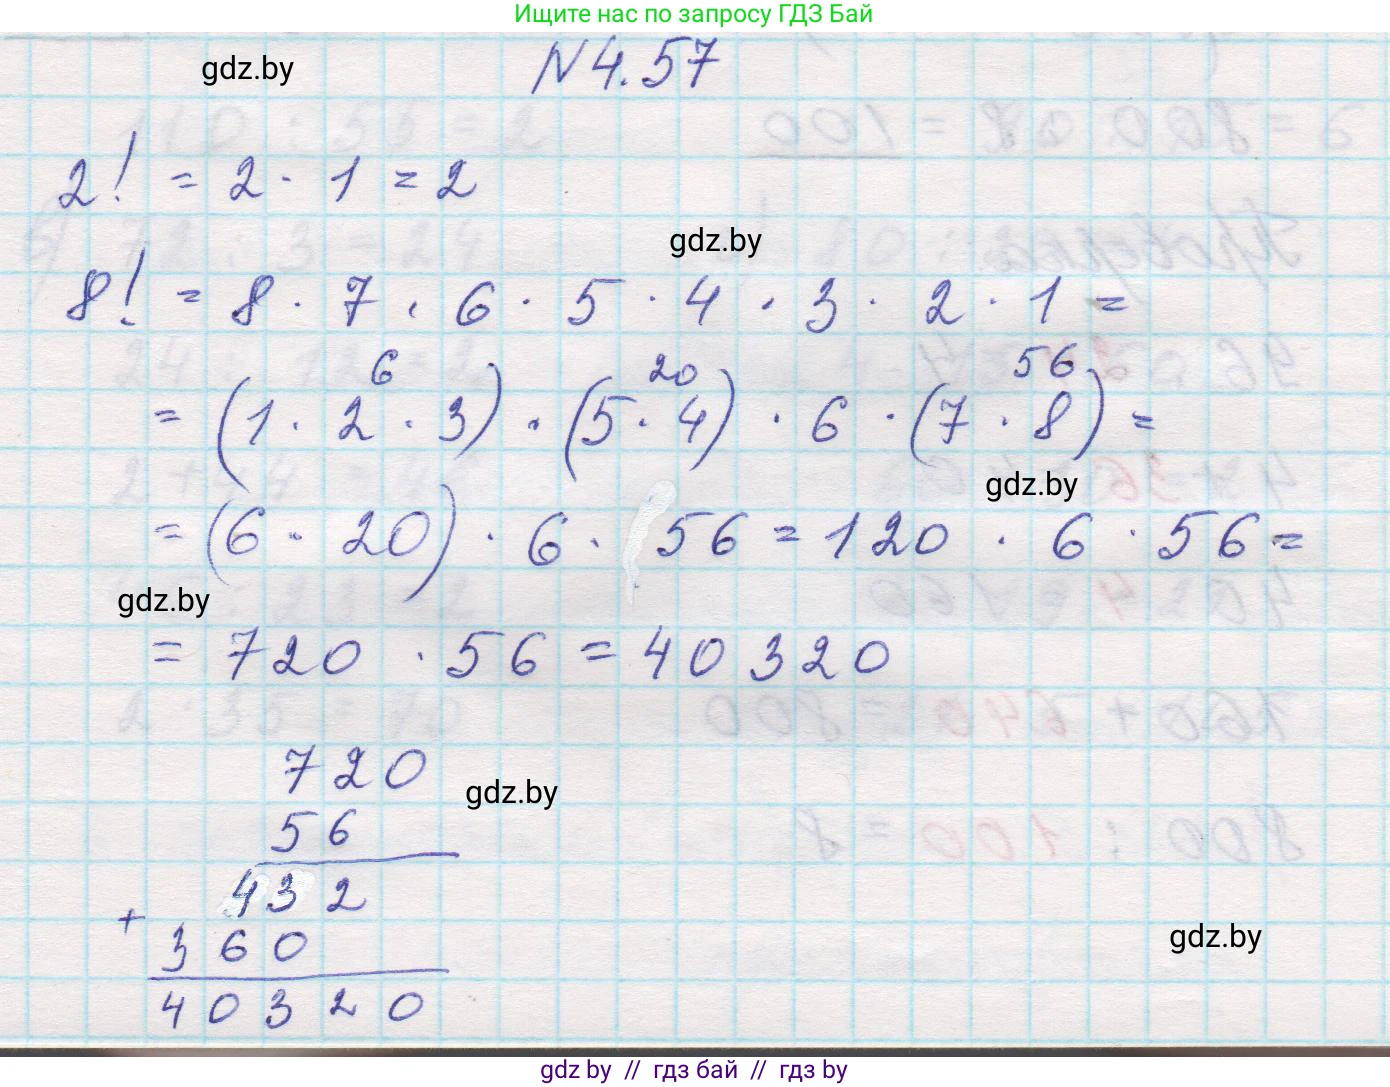 Ищите нас по запросу ГДЗ Бай
gdz.by
N 4.57
2! = 2 · 1 = 2
gdz.by
8! = 8 · 7 · 6 · 5 · 4 · 3 · 2 · 1 =
6 20 56
= (1 · 2 · 3) · (5 · 4) · 6 · (7 · 8) =
gdz.by
= (6 · 20) · 6 · 56 = 120 · 6 · 56 =
gdz.by
= 720 · 56 = 40320
720
gdz.by
56
432
+
360
gdz.by
40320
gdz by // гдз бай // гдз by